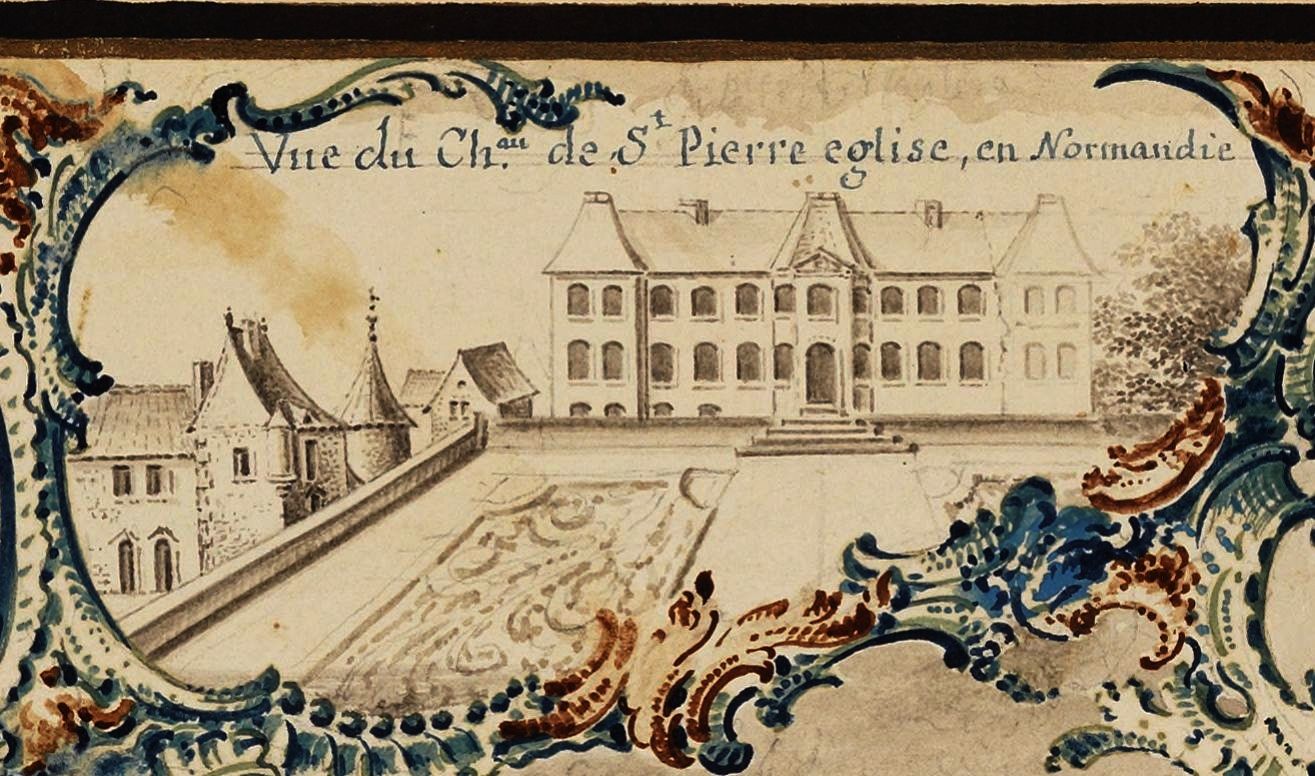 Vue du Ch.au de St Pierre eglise, en Normandie